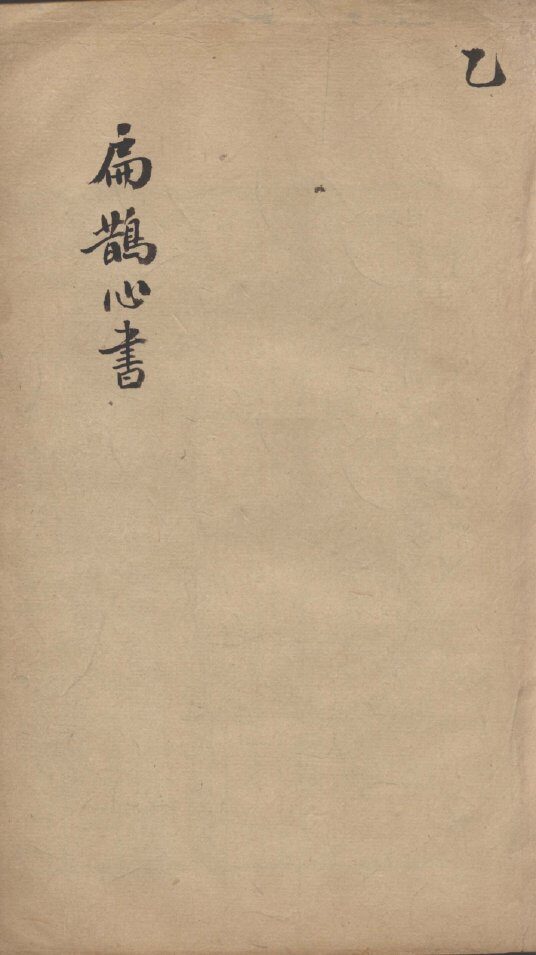 乙
扁鵲心書